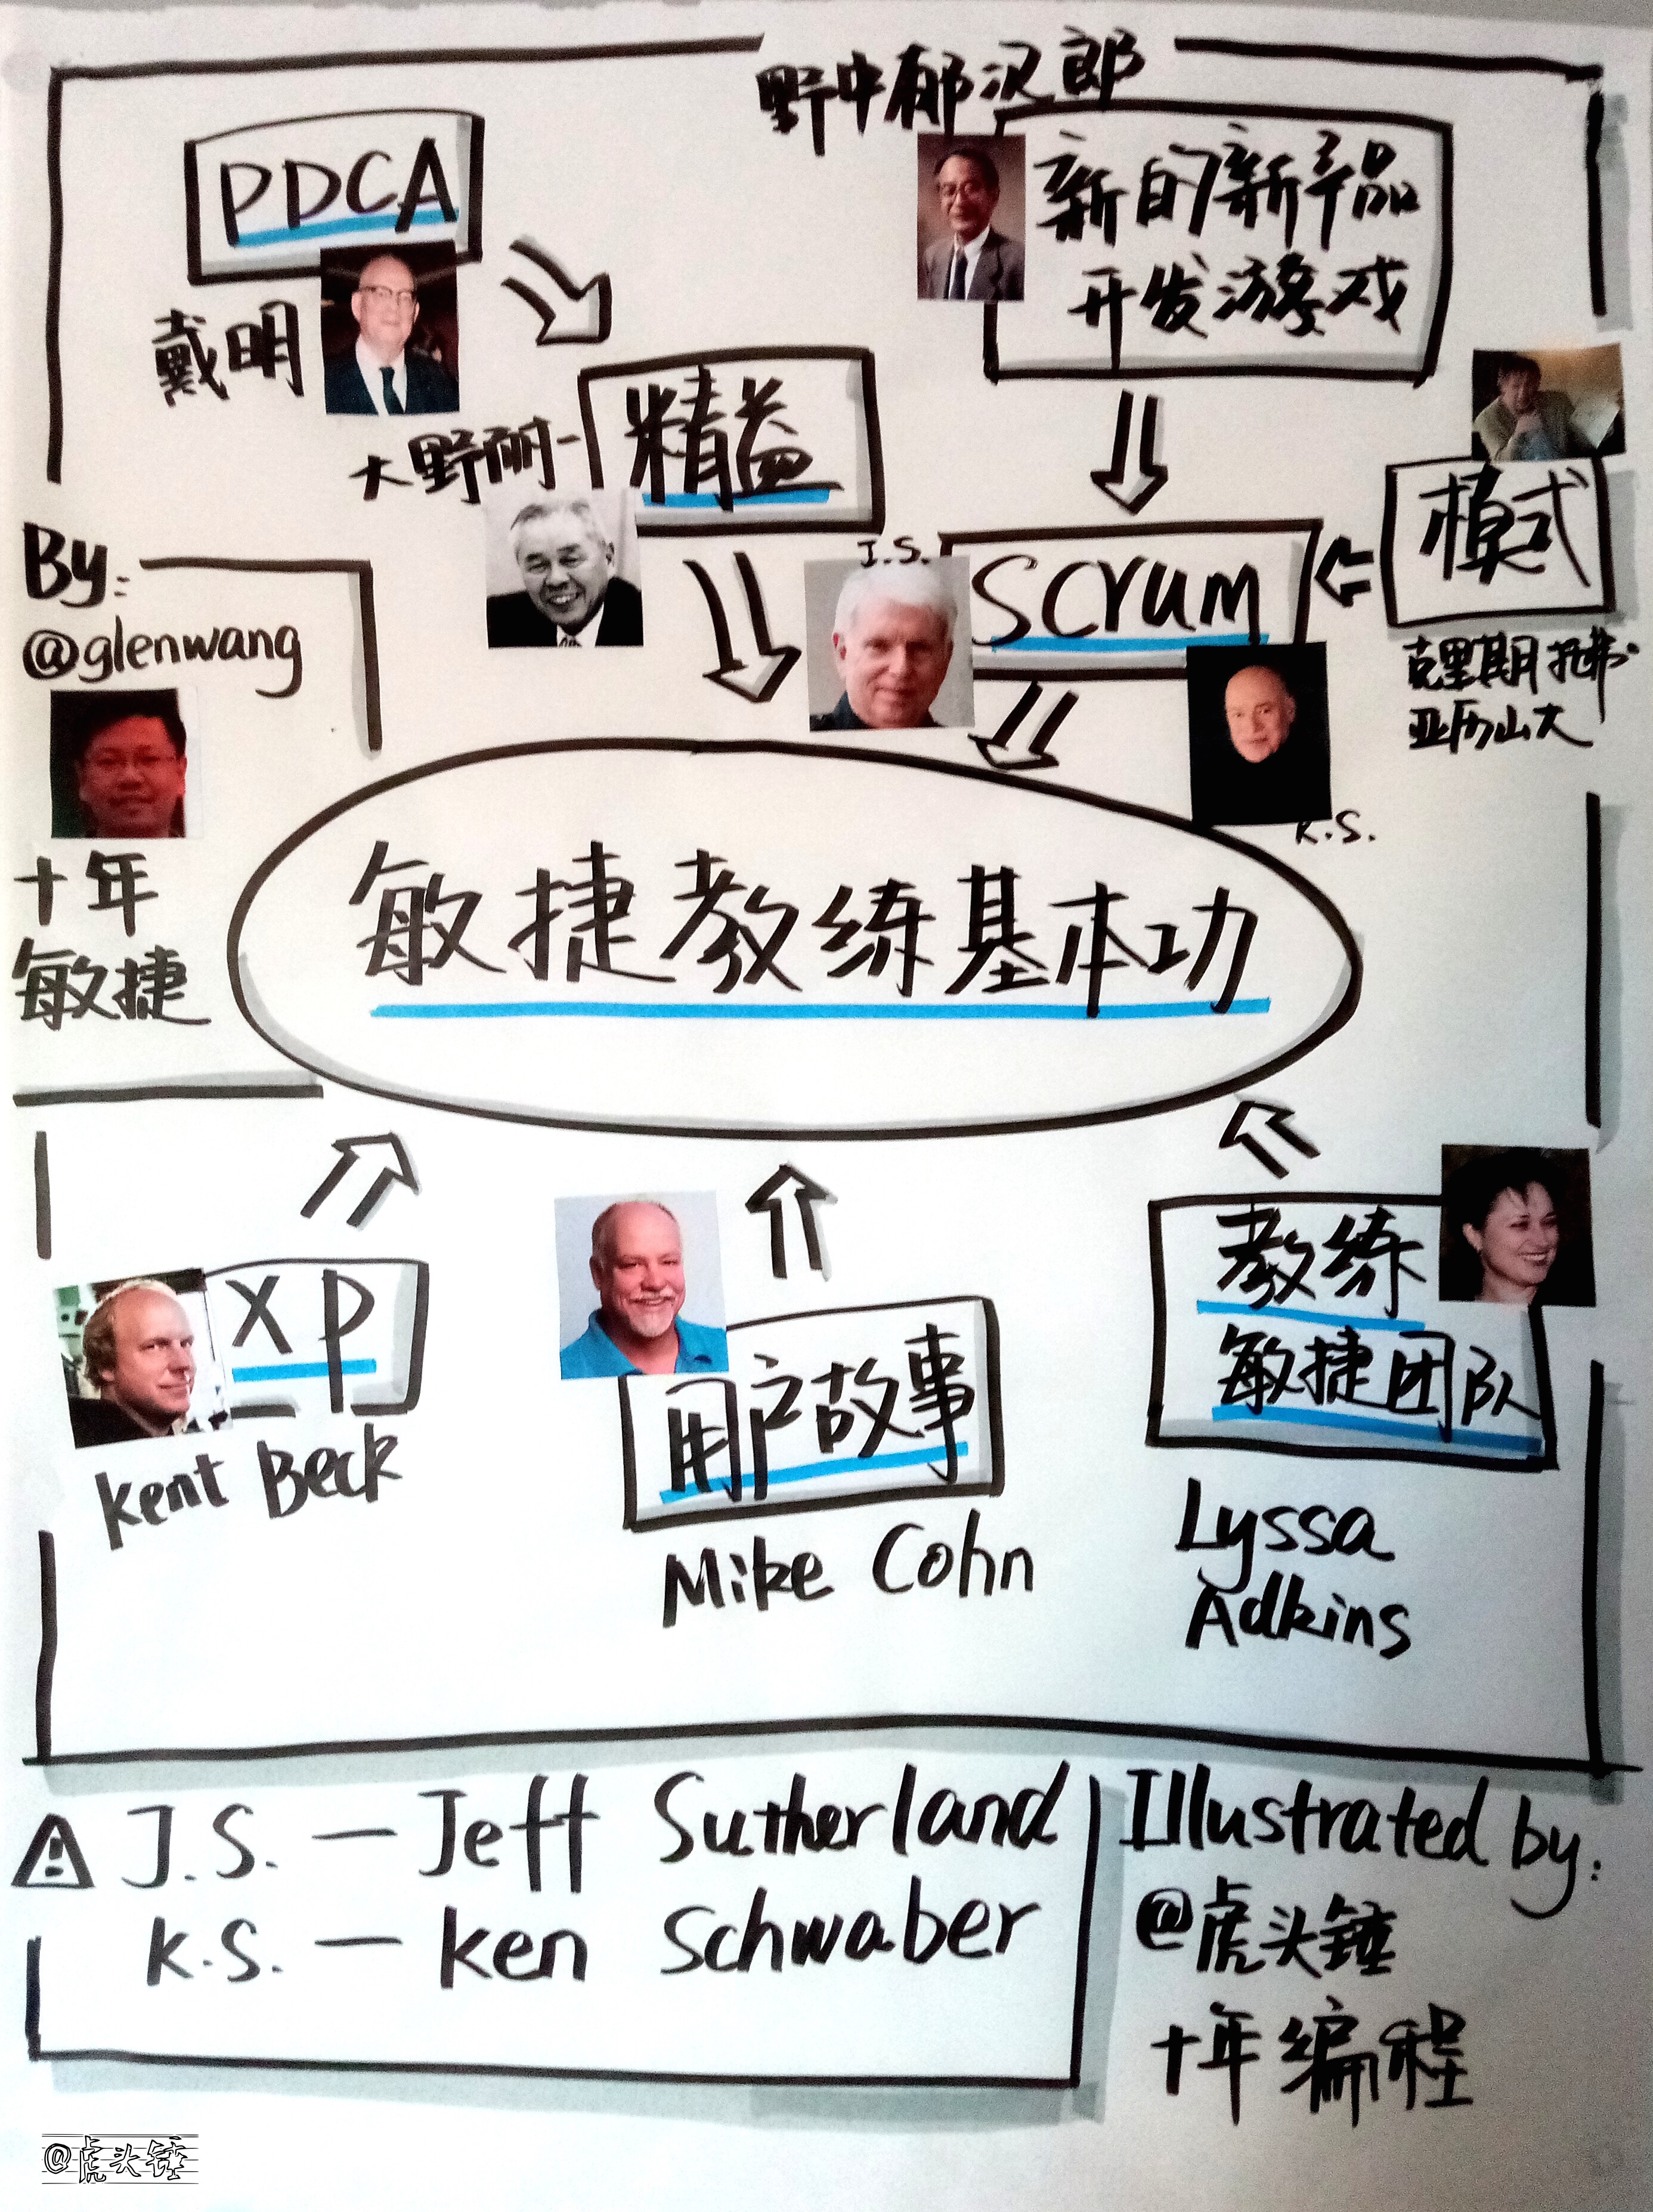 野中郁次郎
PDCA
新的新产品
开发游戏
戴明
大野耐一
精益
模式
By:
@glenwang
J.S.
Scrum
克里斯托弗·
亚历山大
K.S.
十年
敏捷
敏捷教练基本功
XP
Kent Beck
用户故事
Mike Cohn
教练
敏捷团队
Lyssa
Adkins
J.S. — Jeff Sutherland
K.S. — Ken Schwaber
Illustrated by:
@虎头锤
十年编程
@虎头锤